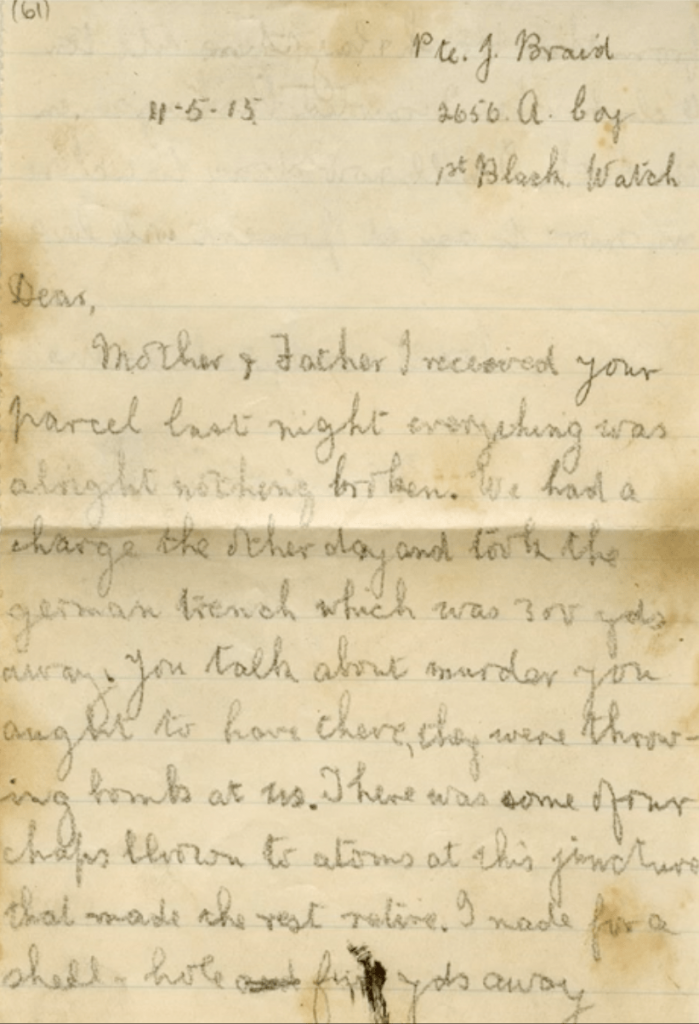 (61)
Pte. J. Braid
11-5-15 2656. A. Coy
1st Black Watch
Dear,
Mother & Father I received your
parcel last night everything was
alright nothing broken. We had a
charge the other day and took the
german trench which was 300 yds
away. You talk about murder you
aught to have there, they were throw-
ing bombs at us. There was some of our
chaps blown to atoms at this juncture
that made the rest retire. I made for a
shell-hole yds away